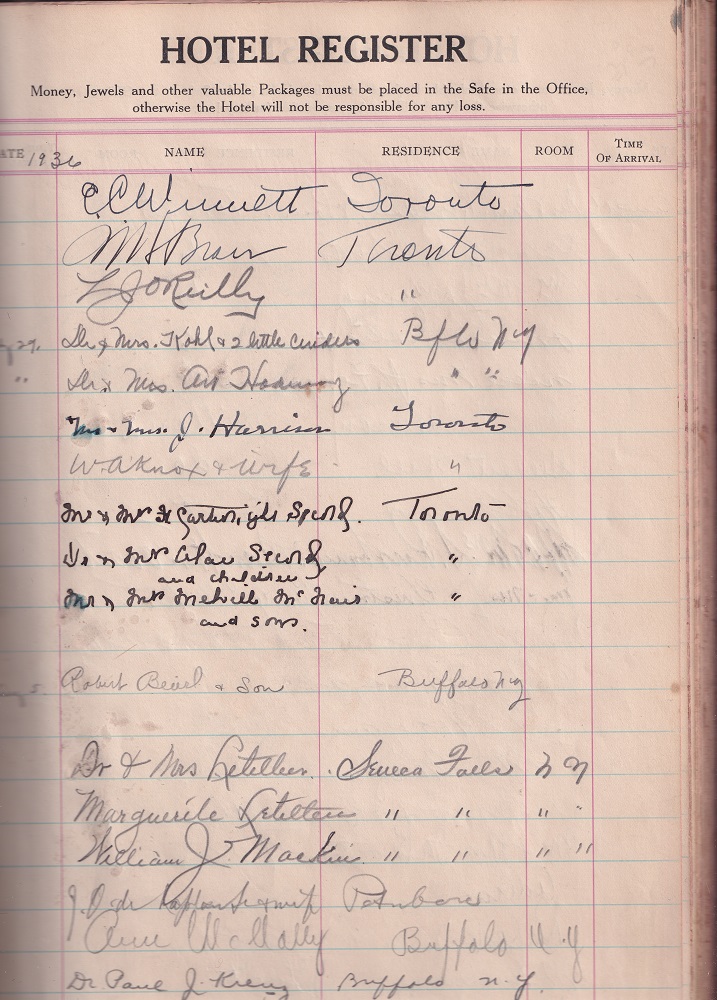 HOTEL REGISTER
Money, Jewels and other valuable Packages must be placed in the Safe in the Office,
otherwise the Hotel will not be responsible for any loss.
ATE 1936 NAME RESIDENCE ROOM TIME OF ARRIVAL
Toronto
Toronto
L J O'Reilly "
Dr & Mrs. Kohl & 2 little Bflo N Y
" Dr & Mrs. Art " "
Mr & Mrs. J. Harrison Toronto
W. A Knox & Wife "
Mr & Mrs Secord. Toronto
Dr & Mrs Alan Secord "
and children
Mr & Mrs Melvill McNair "
and sons.
Robert & Son Buffalo N Y
Dr & Mrs Letellier. Seneca Falls N Y
Marguerite Letellier " " " "
William J. Mackin " " " "
& wife
Ann McNally Buffalo N. Y
Dr. Paul J. Buffalo N.Y.